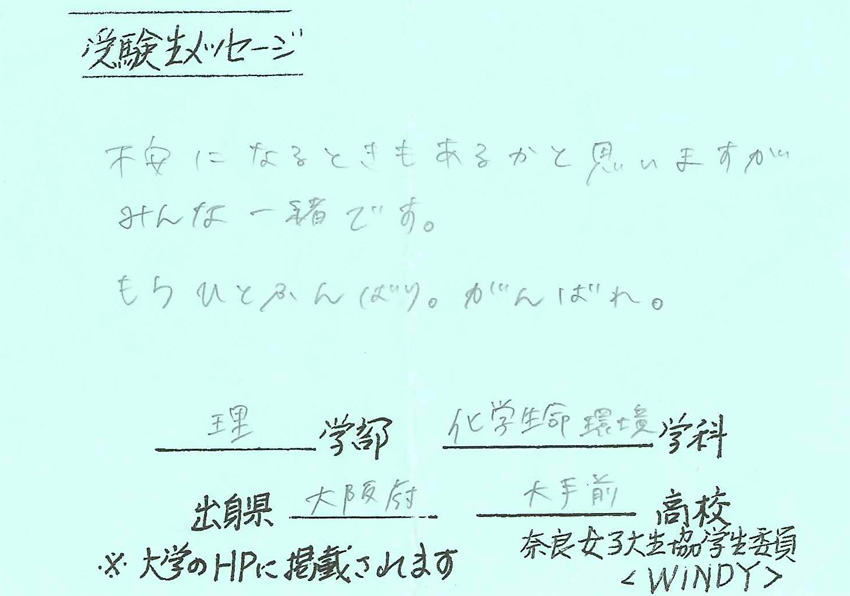 受験生メッセージ
不安になるときもあるかと思いますが
みんな一緒です。
もうひとふんばり。がんばれ。
理学部 化学生命環境学科
出身県 大阪府 大手前高校
奈良女子大生協学生委員
※大学のHPに掲載されます
<WINDY>